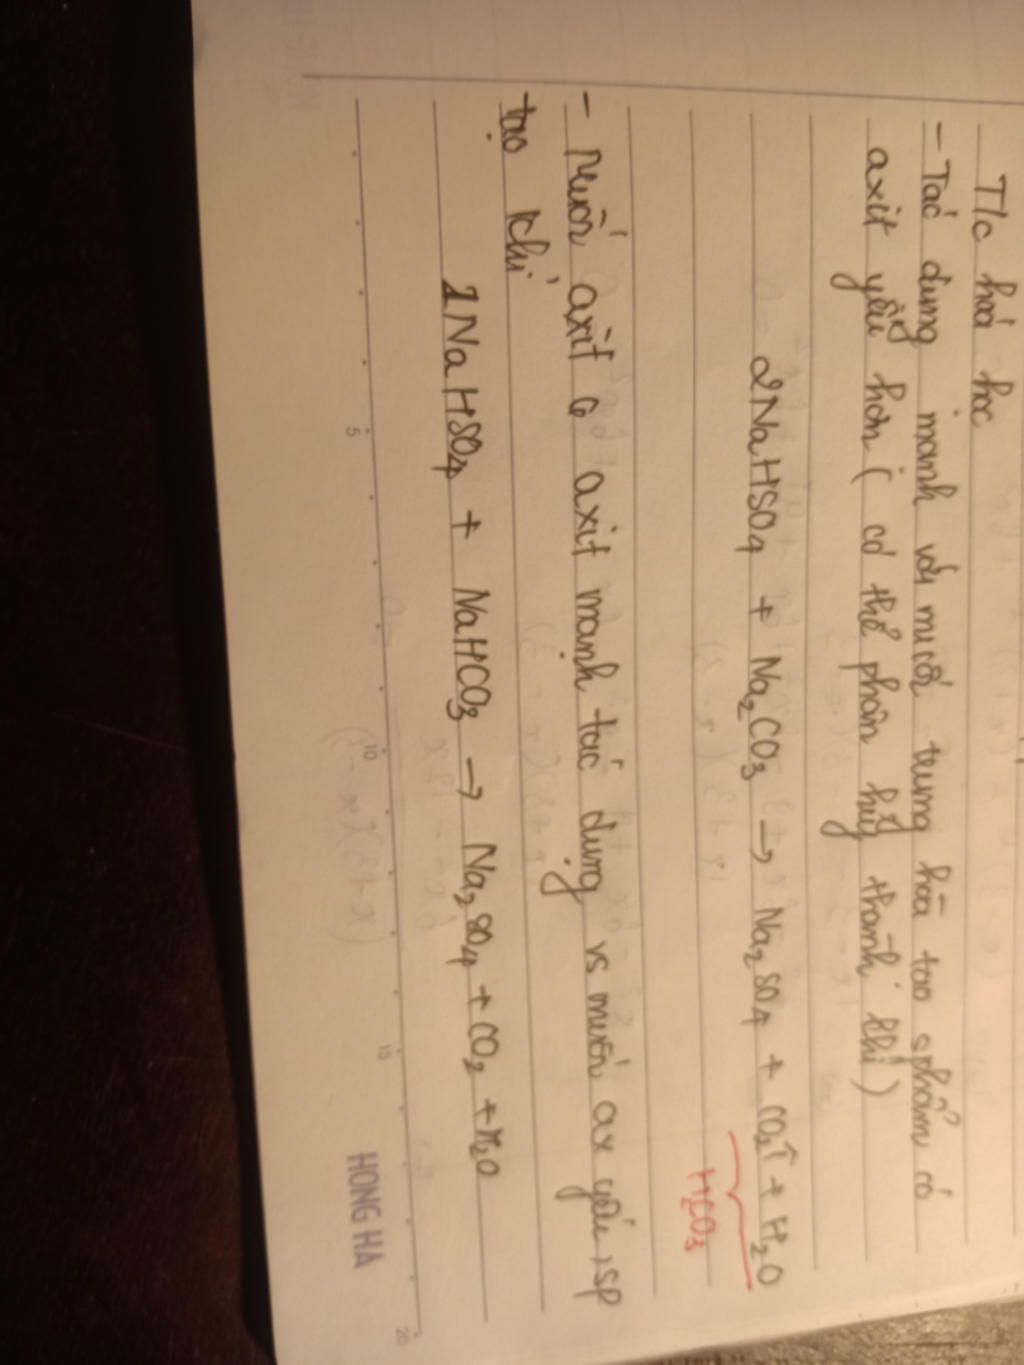 T/c hoá học
- Tác dụng mạnh với muối trung hoà tạo sphẩm có
axit yếu hơn ( có thể phân hủy thành khí )
2NaHSO4 + Na2CO3 → Na2SO4 + CO2↑ + H2O
H2CO3
- Muối axit có axit mạnh tác dụng vs muối ax yếu, sp
tạo khí
2NaHSO4 + NaHCO3 → Na2SO4 + CO2 + H2O
5 10 15 20
HONG HA